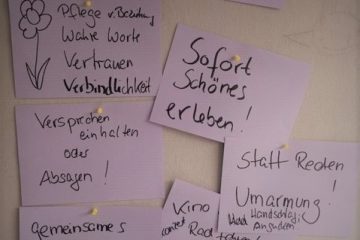 Pflege v. Beziehung
Wahre Worte
Vertrauen
Verbindlichkeit
Sofort
Schönes
erleben!
Versprechen
einhalten
oder
Absagen!
Statt Reden
!
Umarmung!
Handschlag
Kino
Rad
gemeinsames